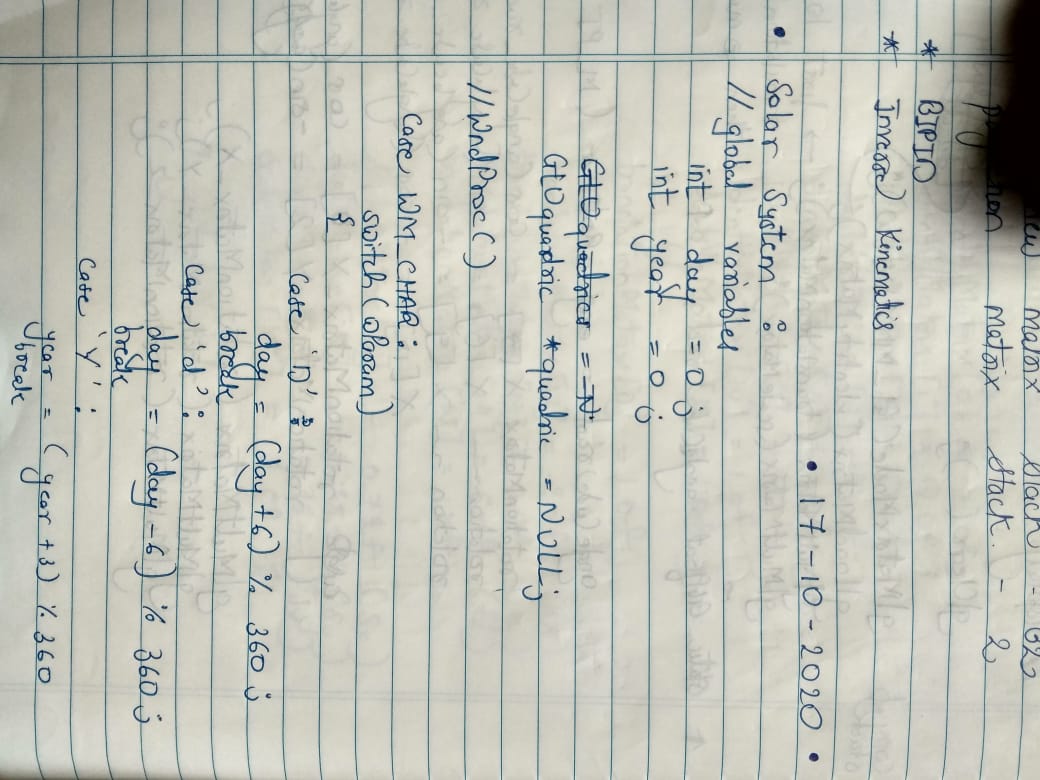 Matrix Stack - 32
Matrix Stack. - 2
* BIPID
* Inverse Kinematics
• 17-10-2020 •
• Solar System :
// global variables
int day = 0 ;
int year = 0 ;
GLUquadrics = N
GLUquadric *quadric = NULL;
//WndProc()
Case WM_CHAR :
switch (wParam)
{
Case 'D' :
day = (day +6) % 360 ;
break
Case 'd' :
day = (day -6) % 360 ;
break
Case 'Y' :
year = ( year +3) % 360
break